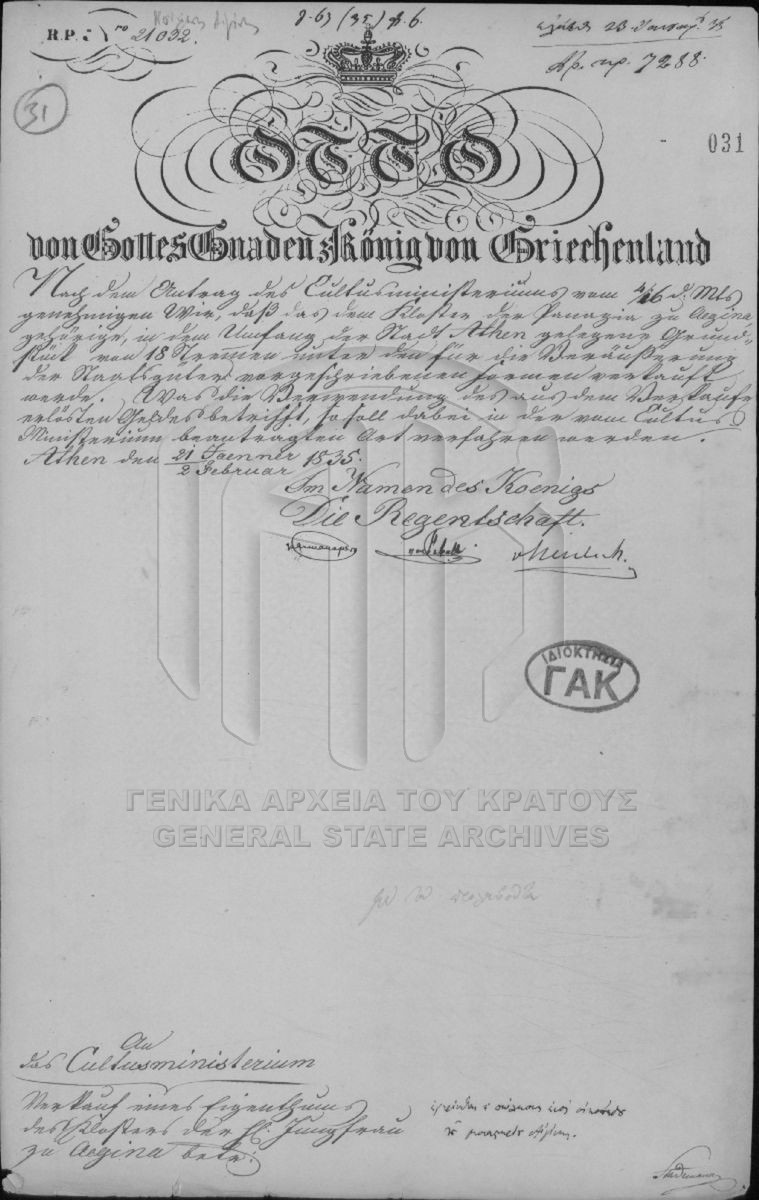 R.P. No 21032.
ελήφθη 23
Αρ. πρ. 7288
31
031
OTTO
von Gottes Gnaden König von Griechenland
Nach dem Antrag des Cultusministeriums vom 4/16 d. Mts
genehmigen Wir, daß das dem Kloster der Panagia zu Aegina
gehörige, in dem Umfang der Stadt Athen gelegene Grund-
stück von 18 Stremen unter den für die Veräußerung
der Staatsgüter vorgeschriebenen Formen verkauft
werde. Was die Verwendung des aus dem Verkaufe
erlösten Geldes betrifft, so soll dabei in der vom Cultus
Ministerium beantragten Art verfahren werden.
Athen den 21 Jaenner / 2 Februar 1835.
Im Namen des Koenigs
Die Regentschaft.
ΙΔΙΟΚΤΗΣΙΑ
ΓΑΚ
ΓΕΝΙΚΑ ΑΡΧΕΙΑ ΤΟΥ ΚΡΑΤΟΥΣ
GENERAL STATE ARCHIVES
An
das Cultusministerium
Verkauf eines Eigenthums
des Klosters der hl. Jungfrau
zu Aegina betr.